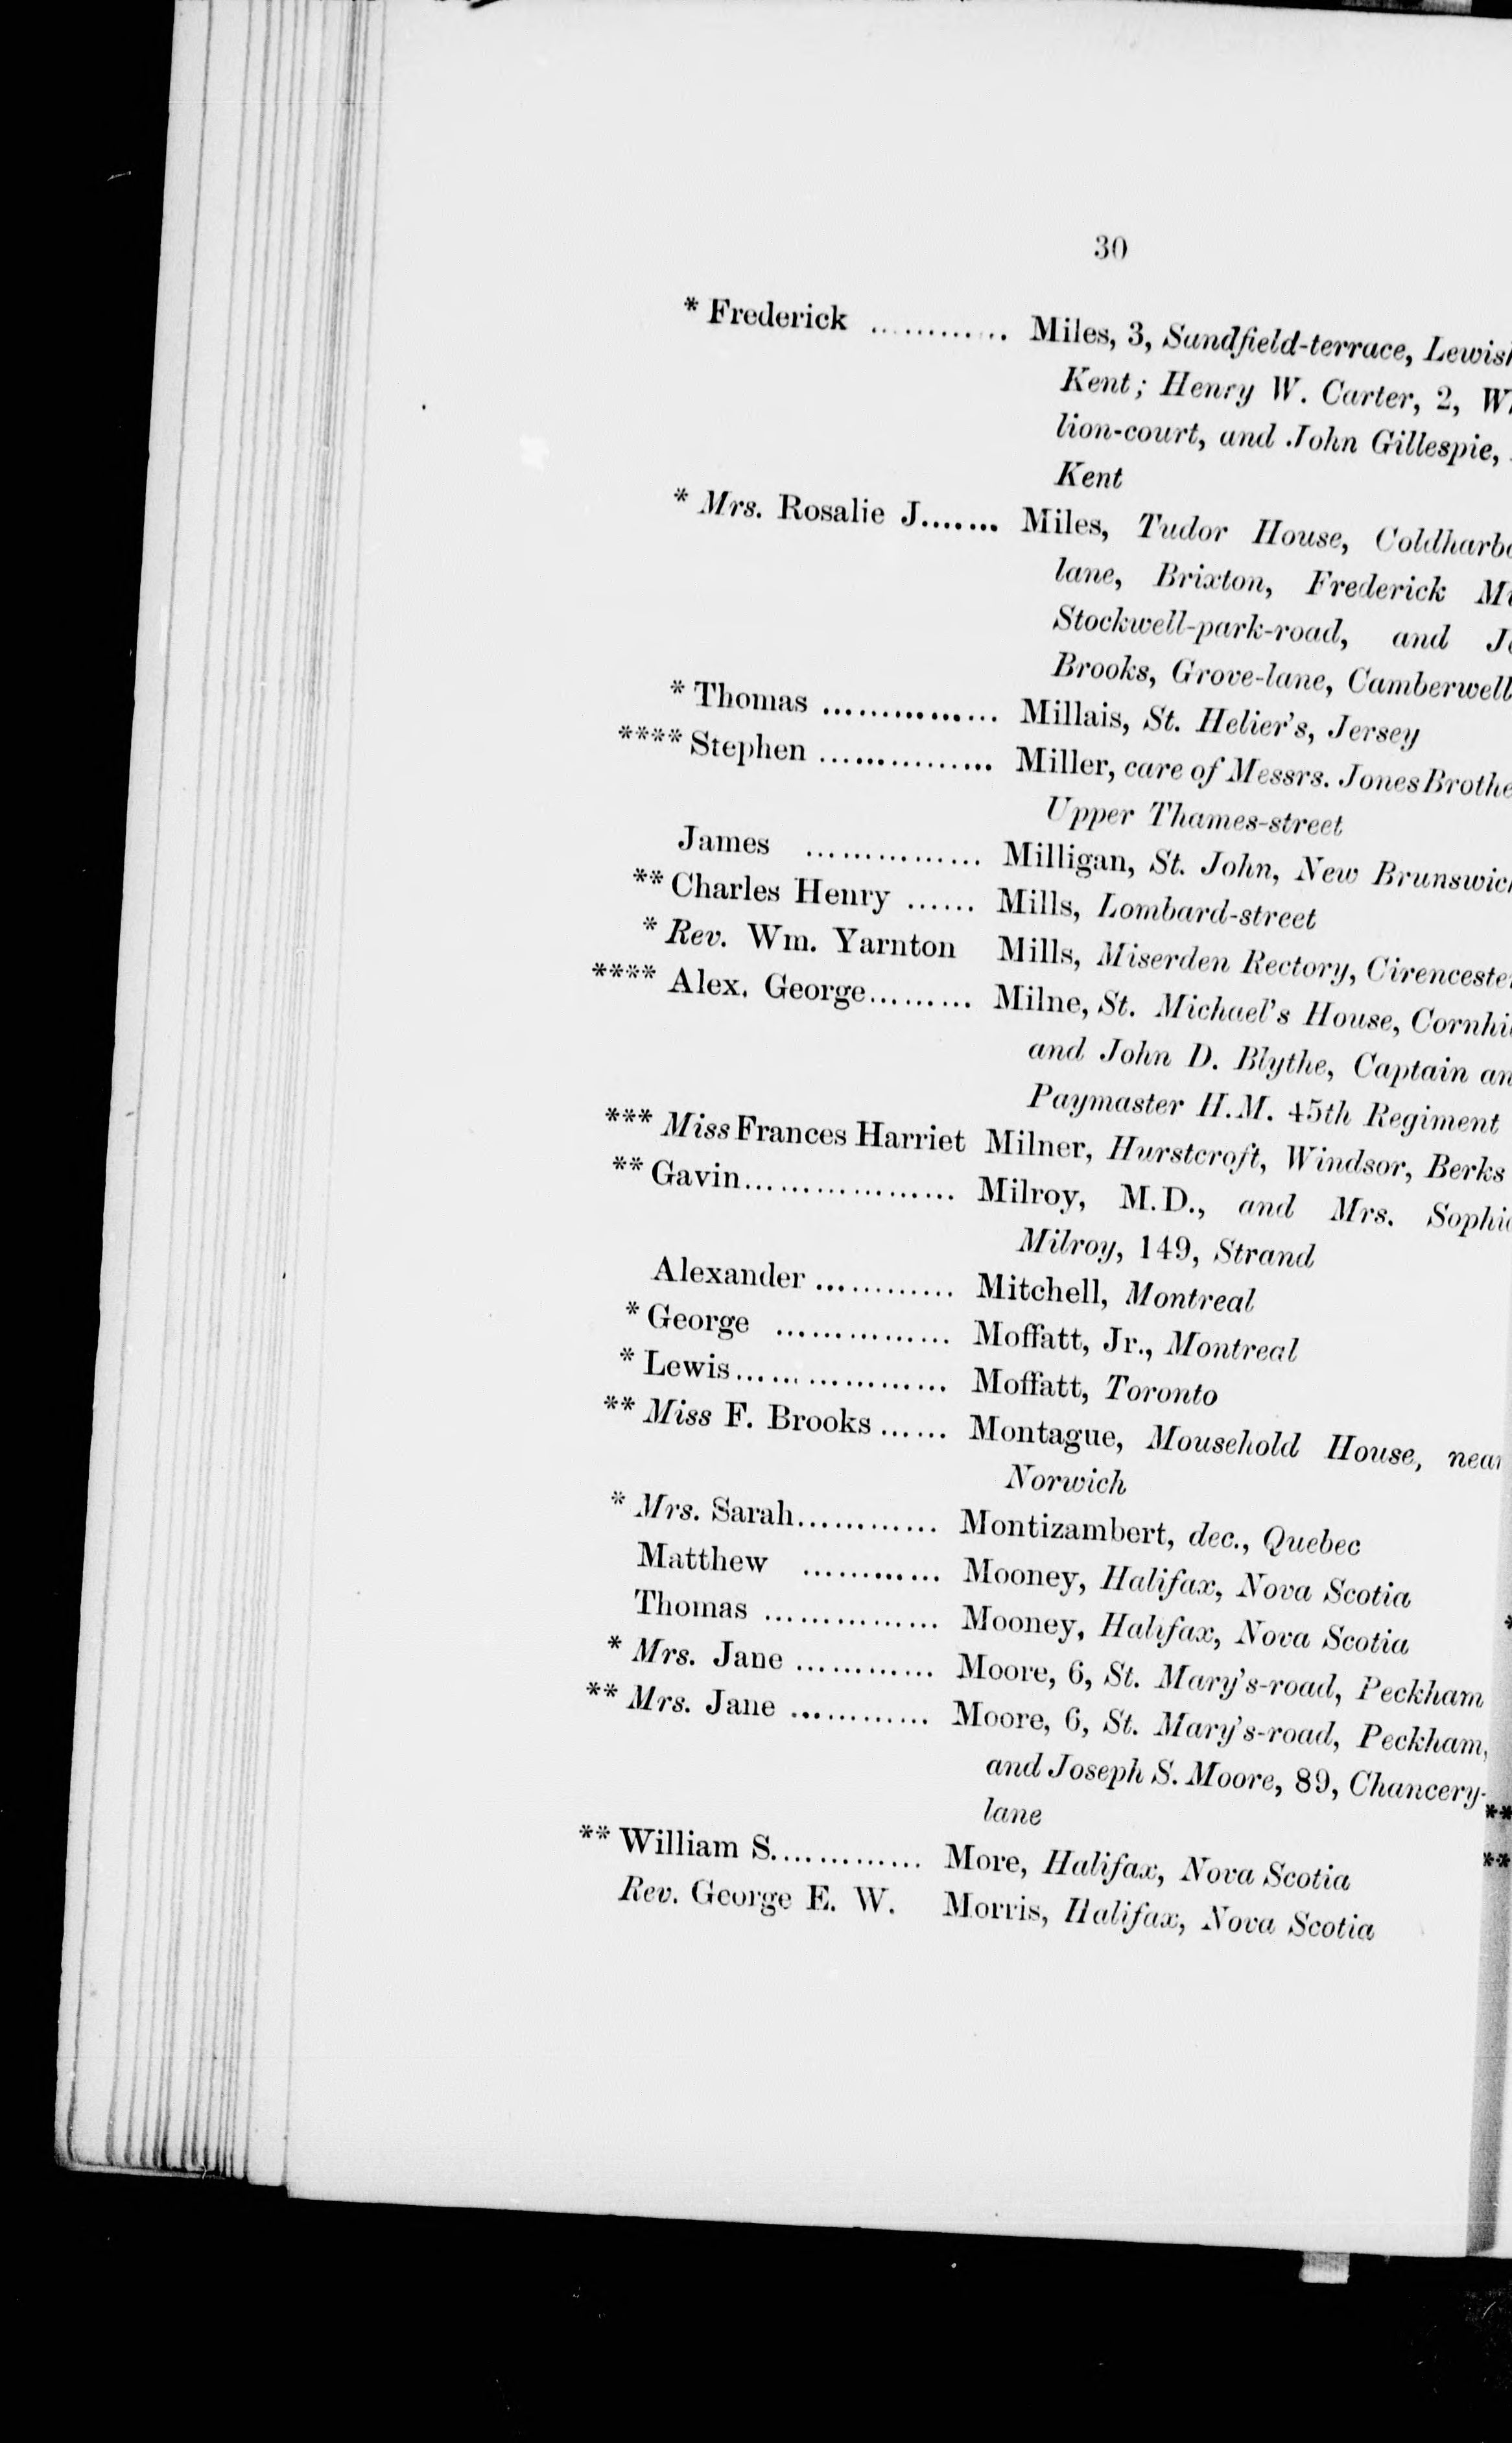 30
* Frederick ............ Miles, 3, Sandfield-terrace, Lewish
Kent; Henry W. Carter, 2, W
lion-court, and John Gillespie,
Kent
* Mrs. Rosalie J....... Miles, Tudor House, Coldharbo
lane, Brixton, Frederick Mi
Stockwell-park-road, and J
Brooks, Grove-lane, Camberwell
* Thomas ............... Millais, St. Helier's, Jersey
**** Stephen ............... Miller, care of Messrs. Jones Brothe
Upper Thames-street
James ............... Milligan, St. John, New Brunswick
** Charles Henry ...... Mills, Lombard-street
* Rev. Wm. Yarnton Mills, Miserden Rectory, Cirencester
**** Alex. George......... Milne, St. Michael's House, Cornhil
and John D. Blythe, Captain an
Paymaster H.M. 45th Regiment
*** Miss Frances Harriet Milner, Hurstcroft, Windsor, Berks
** Gavin.................. Milroy, M.D., and Mrs. Sophia
Milroy, 149, Strand
Alexander ............ Mitchell, Montreal
* George ............... Moffatt, Jr., Montreal
* Lewis.................. Moffatt, Toronto
** Miss F. Brooks ...... Montague, Mousehold House, near
Norwich
* Mrs. Sarah............ Montizambert, dec., Quebec
Matthew ............ Mooney, Halifax, Nova Scotia
Thomas ............... Mooney, Halifax, Nova Scotia
* Mrs. Jane ............ Moore, 6, St. Mary's-road, Peckham
** Mrs. Jane ............ Moore, 6, St. Mary's-road, Peckham,
and Joseph S. Moore, 89, Chancery-
lane
** William S............. More, Halifax, Nova Scotia
Rev. George E. W. Morris, Halifax, Nova Scotia